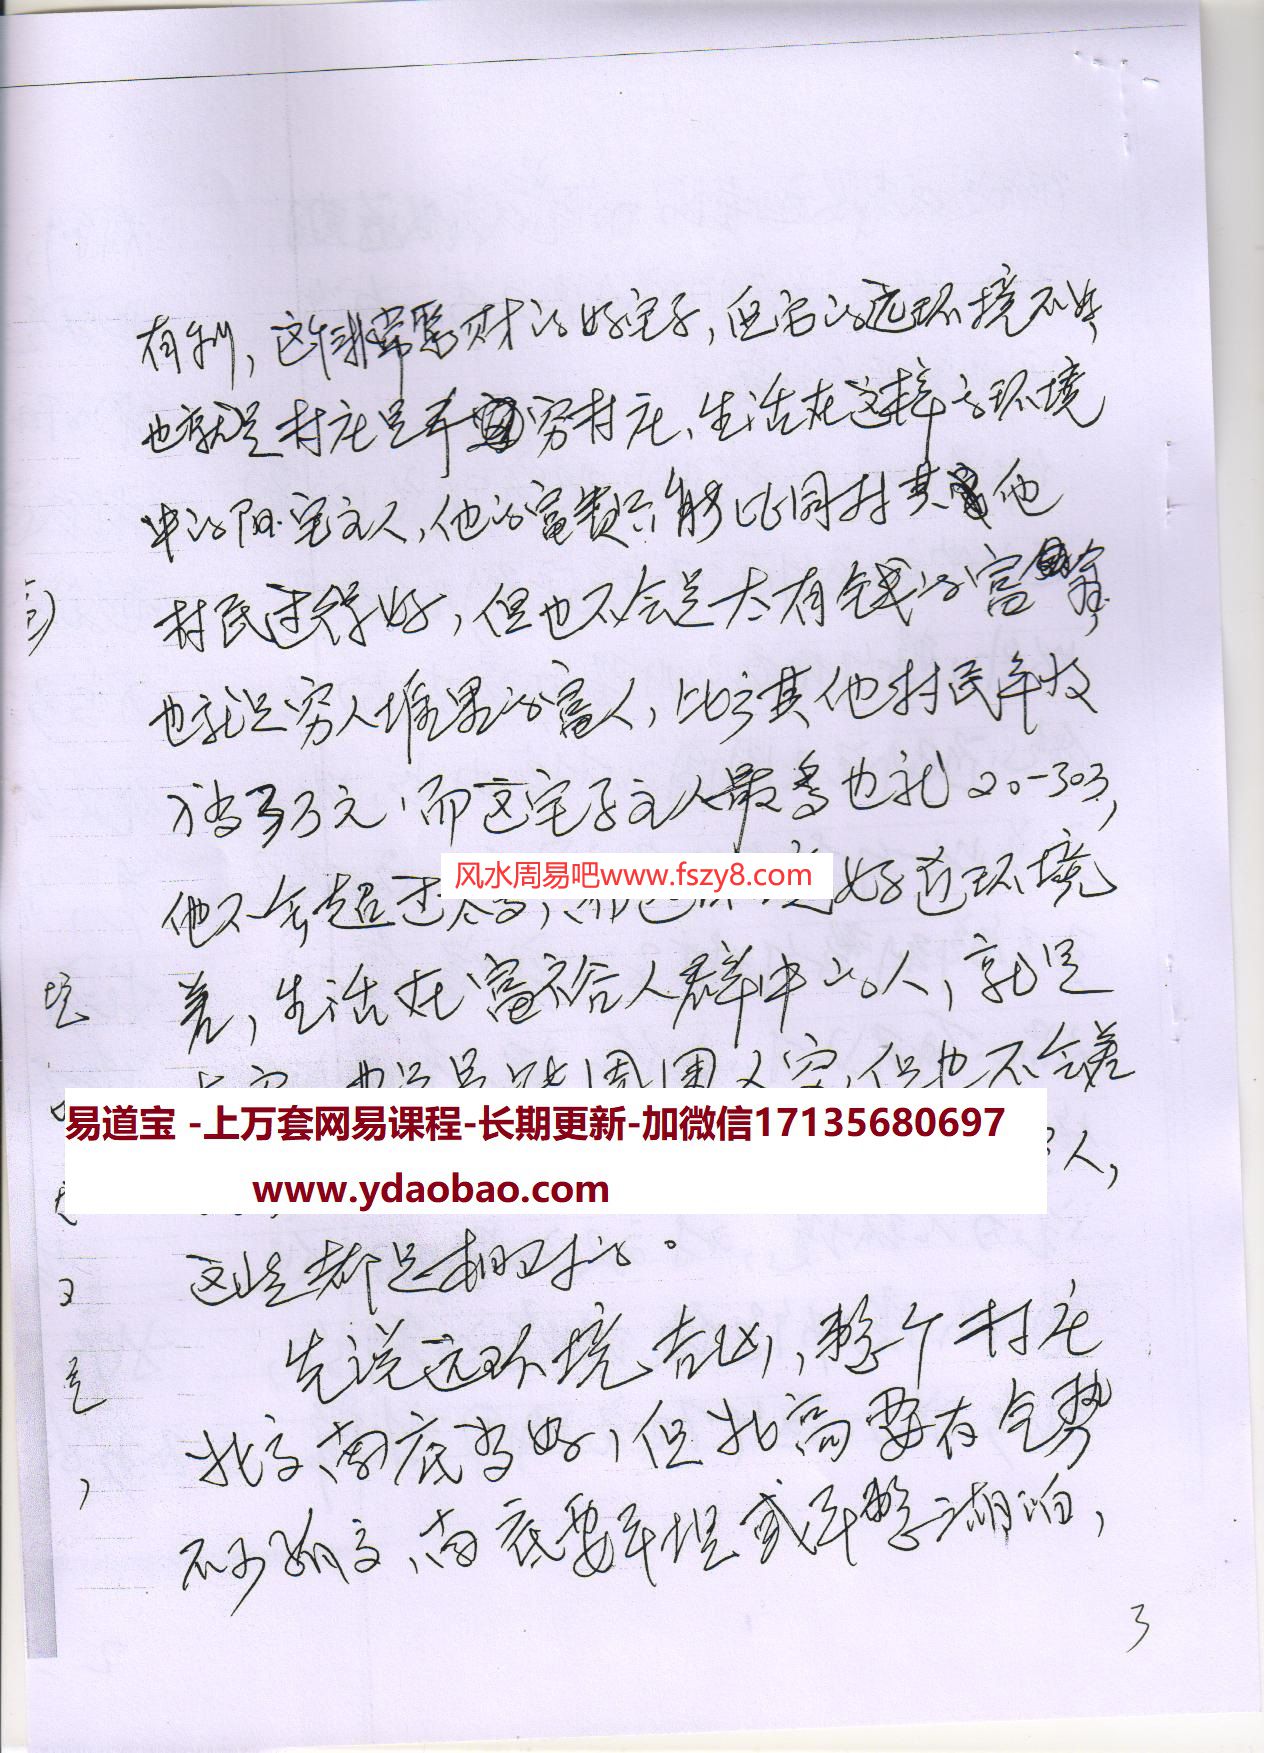 有利，这个非常聚财的好宅子，但它的远环境不好
也就是村庄是个穷村庄、生活在这样的环境
中的阳宅主人，他的富贵只能比同村其他
村民过得好，但也不会是太有钱的富翁，
也就是穷人堆里的富人，比方其他村民年收
万元 而这宅子主人最多也就20-30
风水周易吧www.fszy8.com
他不会超过太多，好近环境
差，生活在富裕人群中的人，就是
周围 但也不会差
易道宝 -上万套网易课程-长期更新-加微信17135680697
人，
www.ydaobao.com
这些都是相对的。
先说远环境吉凶，整个村庄
北高南底为好，但北高要有气势
不可 南底要平坦或平整 湖泊，
3